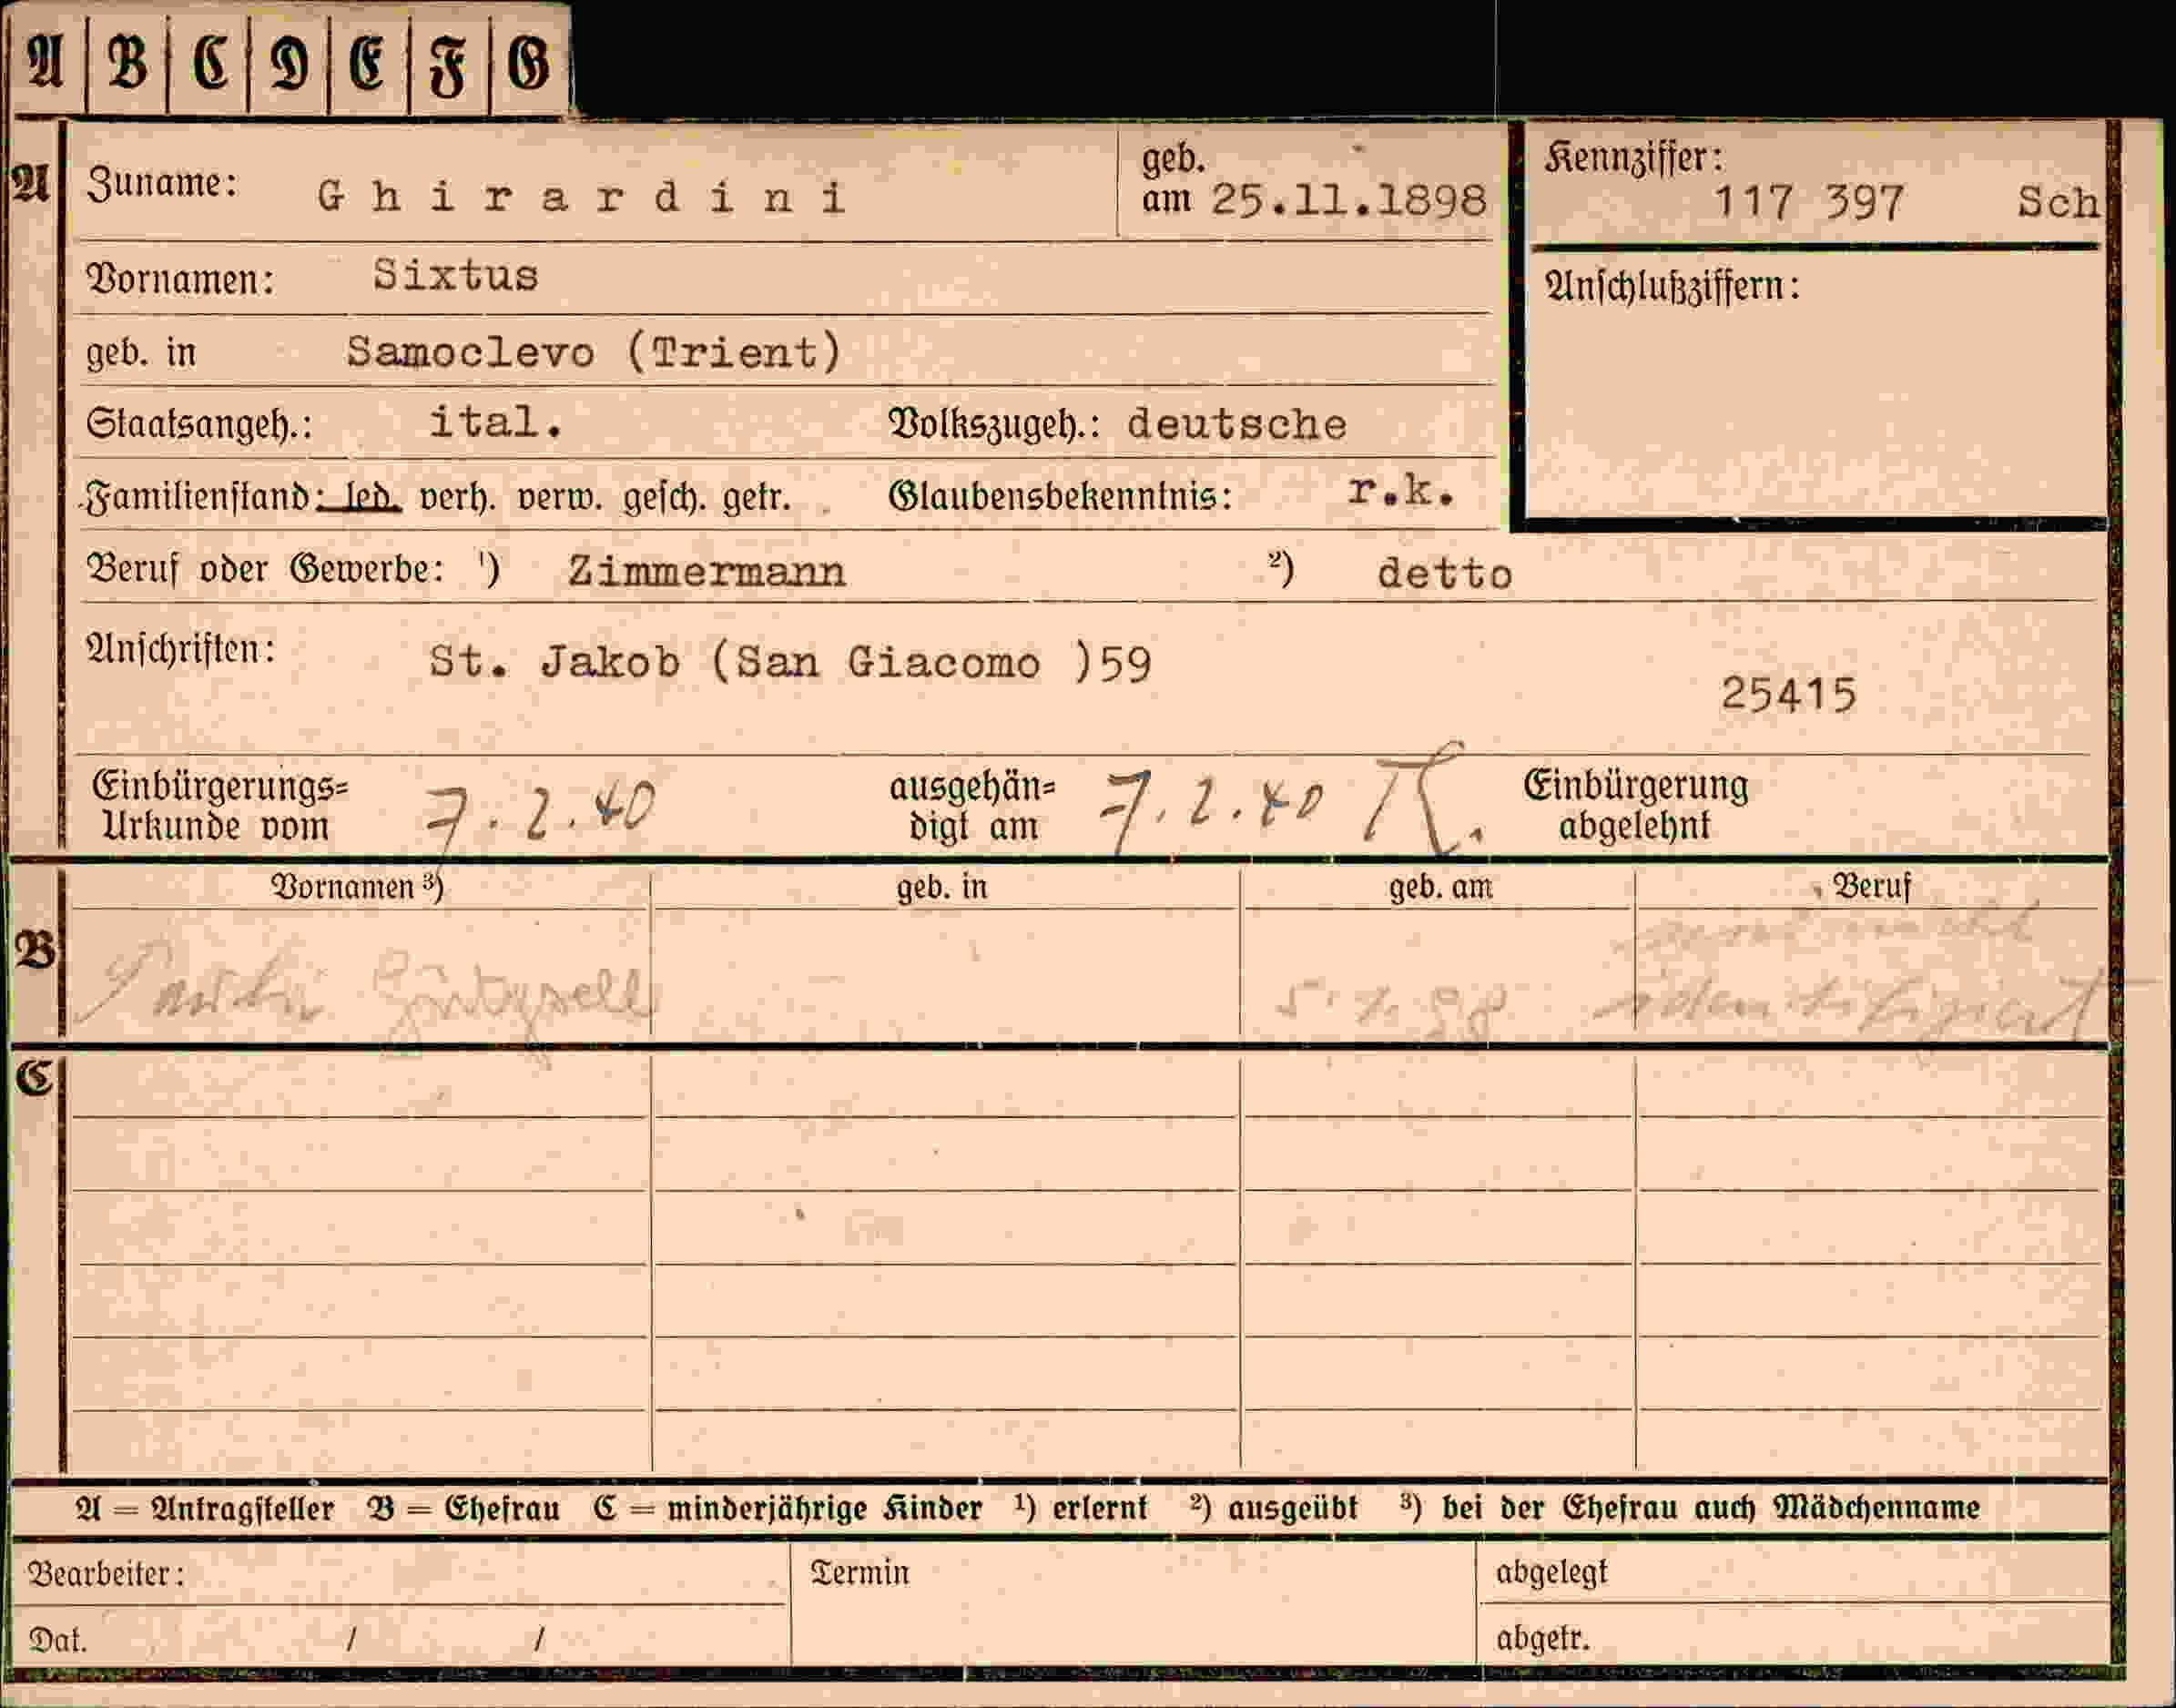 A B C D E F G
A Zuname: Ghirardini geb. am 25.11.1898 Kennziffer: 117 397 Sch
Vornamen: Sixtus Anschlußziffern:
geb. in Samoclevo (Trient)
Staatsangeh.: ital. Volkszugeh.: deutsche
Familienstand: led. verh. verw. gesch. getr. Glaubensbekenntnis: r.k.
Beruf oder Gewerbe: ¹) Zimmermann ²) detto
Anschriften: St. Jakob (San Giacomo )59
25415
Einbürgerungs= ausgehän= Einbürgerung
Urkunde vom 7.2.40 digt am 7.2.40 abgelehnt
Vornamen ³) geb. in geb. am Beruf
B
identifiziert
C
A = Antragsteller B = Ehefrau C = minderjährige Kinder ¹) erlernt ²) ausgeübt ³) bei der Ehefrau auch Mädchenname
Bearbeiter: Termin abgelegt
Dat. / / abgetr.